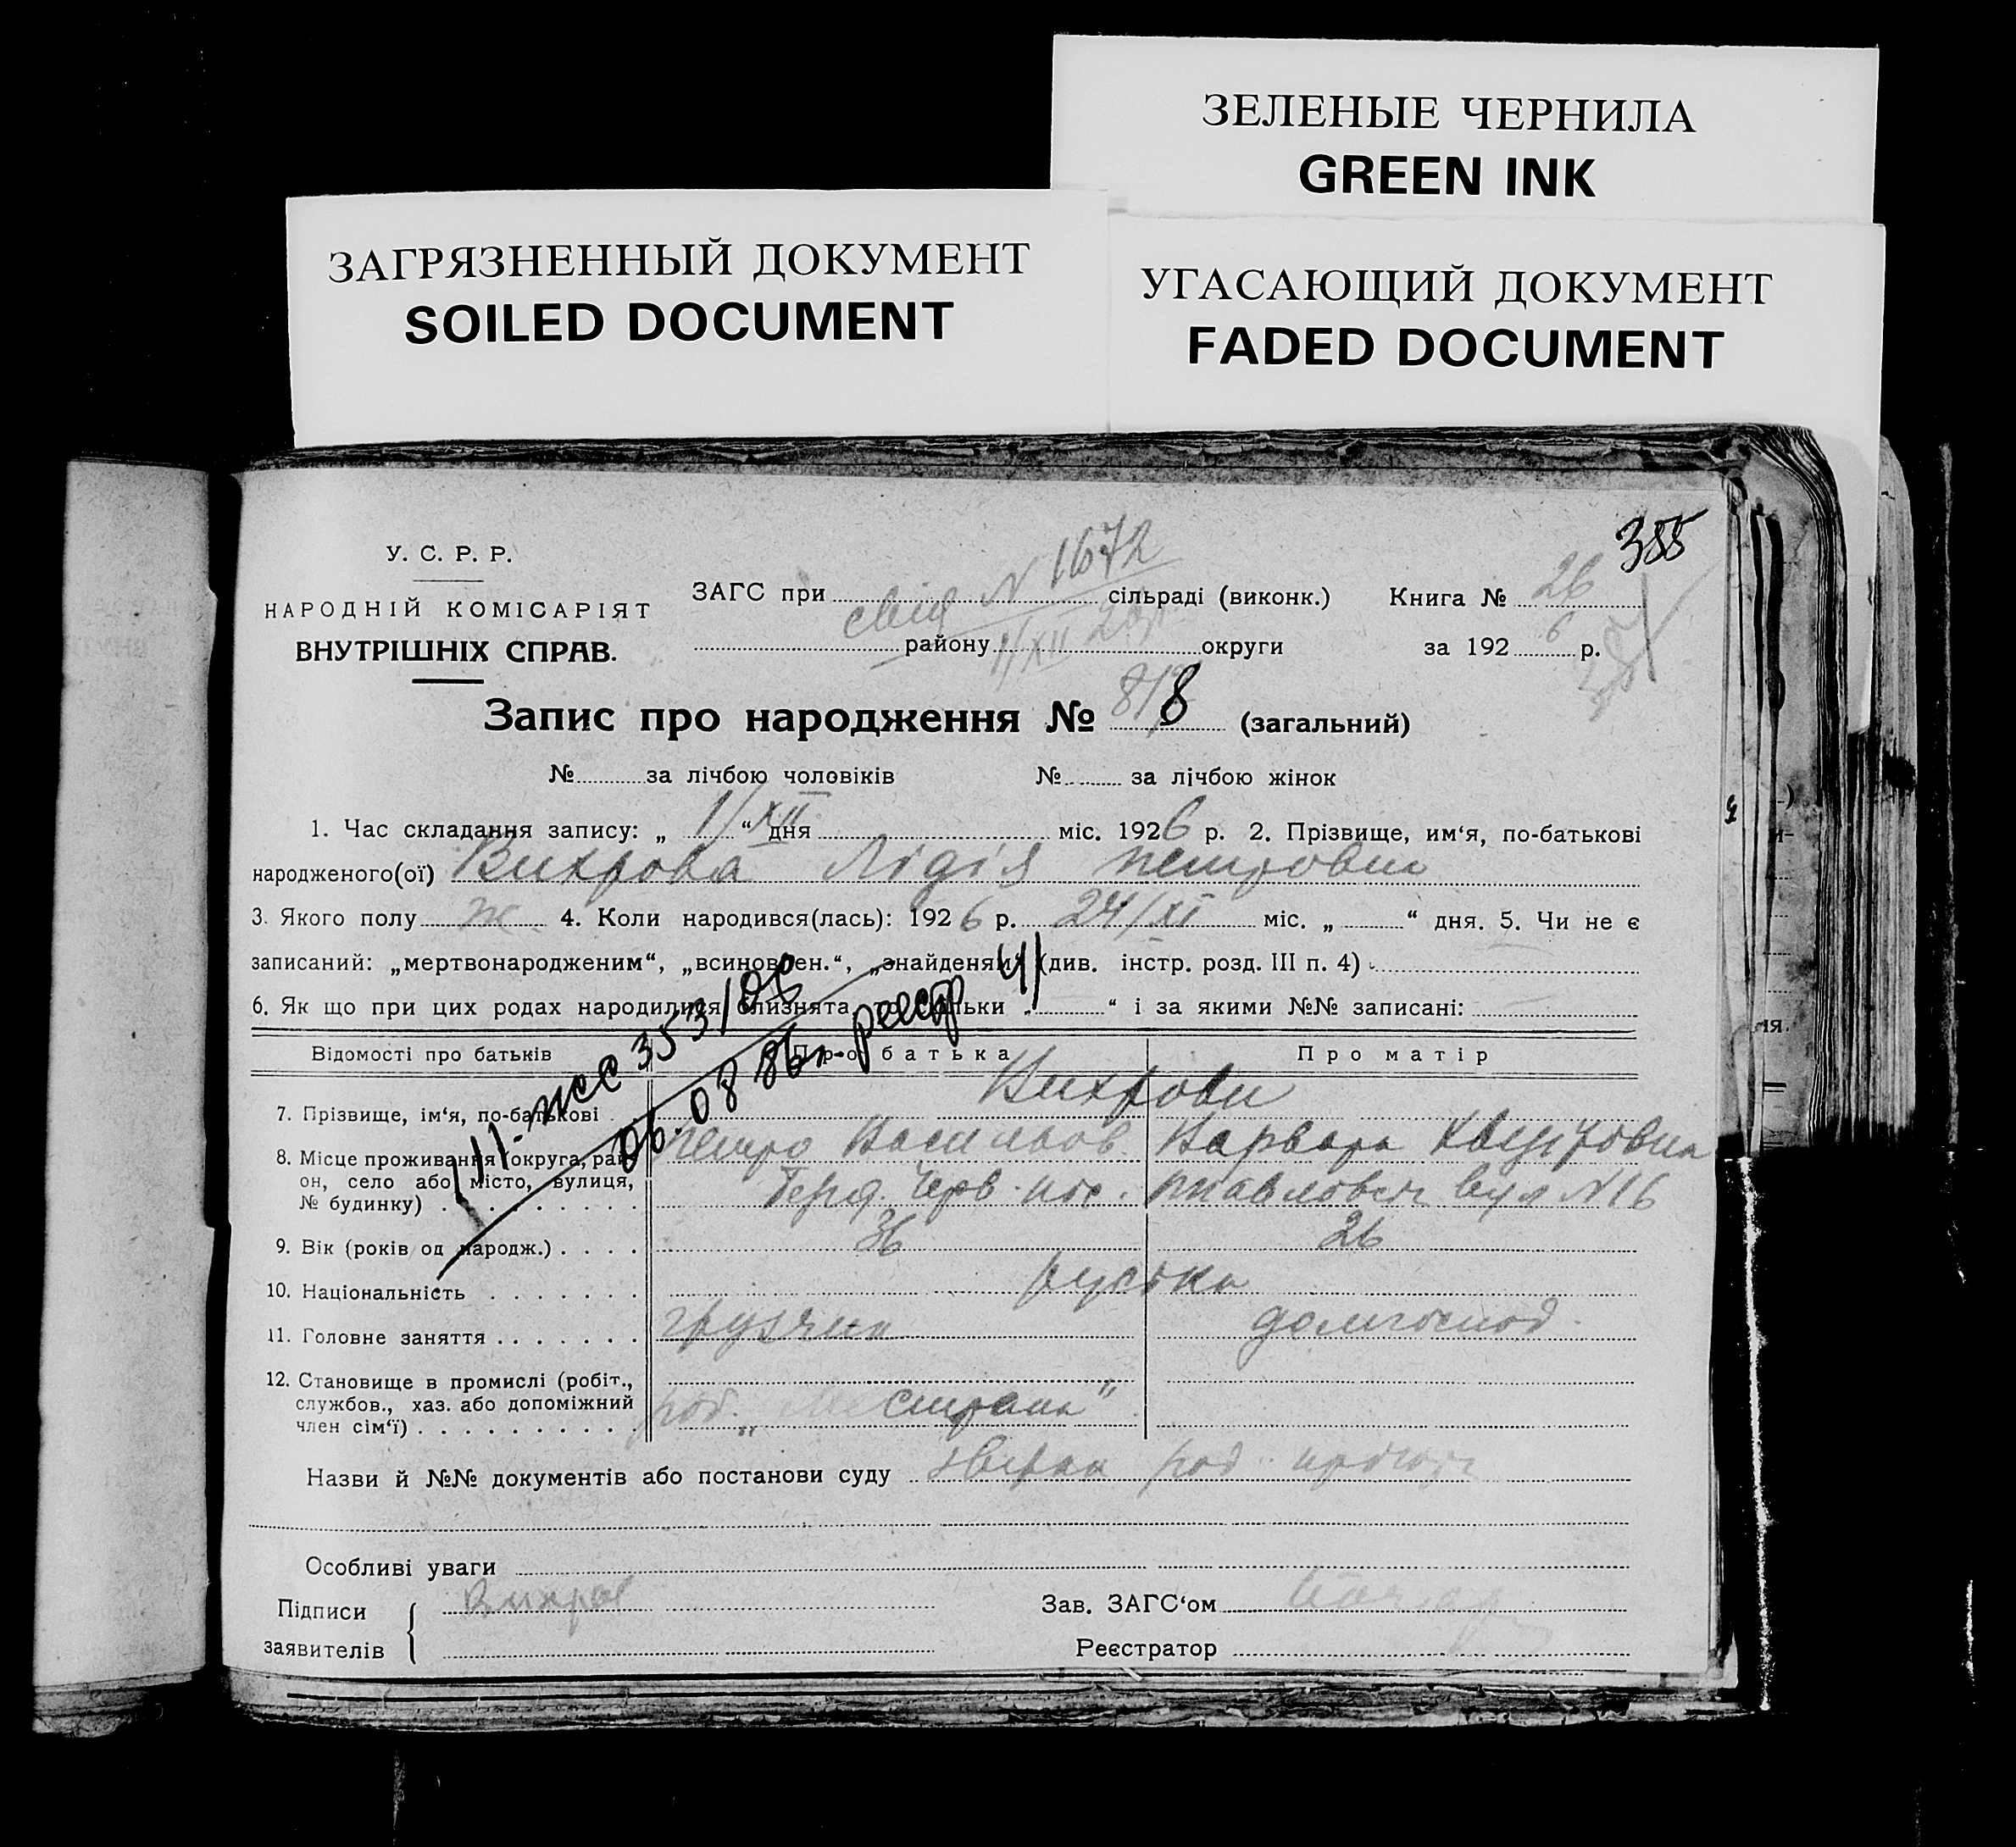 ЗЕЛЕНЫЕ ЧЕРНИЛА
GREEN INK
ЗАГРЯЗНЕННЫЙ ДОКУМЕНТ
SOILED DOCUMENT
УГАСАЮЩИЙ ДОКУМЕНТ
FADED DOCUMENT
355
У. С. Р. Р.
НАРОДНІЙ КОМІСАРІЯТ
ВНУТРІШНІХ СПРАВ.
N 1672
ЗАГС при сільраді (виконк.) Книга № 26
району округи за 192 6 р.
Запис про народження № 818 (загальний)
№ за лічбою чоловіків № за лічбою жінок
1. Час складання запису: „ 1/XII “ дня міс. 1926 р. 2. Прізвище, им‘я, по-батькові
народженого(ої) Вихрова Лідія Петровна
3. Якого полу ж 4. Коли народився(лась): 1926 р. 24/XI міс. „ “ дня. 5. Чи не є
записаний: „мертвонародженим“, „всиновлен.“, „знайденям“ (див. інстр. розд. III п. 4)
6. Як що при цих родах народилися близнята, то скільки „ “ і за якими №№ записані:
Відомості про батьків Про батька Про матір
06.08 86г. реестр 41
7. Прізвище, ім‘я, по-батькові Вихрови
Петро Васильов. Варвара
8. Місце проживання (округа, район, село або місто, вулиця, № будинку) Берд. Черв. вул N 16
9. Вік (років од народж.) 36 26
10. Національність руська
11. Головне заняття грузчик домгоспод.
12. Становище в промислі (робіт.,
службов., хаз. або допоміжний
член сім‘ї) роб.
Назви й №№ документів або постанови суду
Особливі уваги
Підписи Вихров Зав. ЗАГС‘ом
заявителів Реєстратор